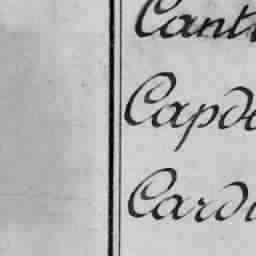 Cant
Capd
Card